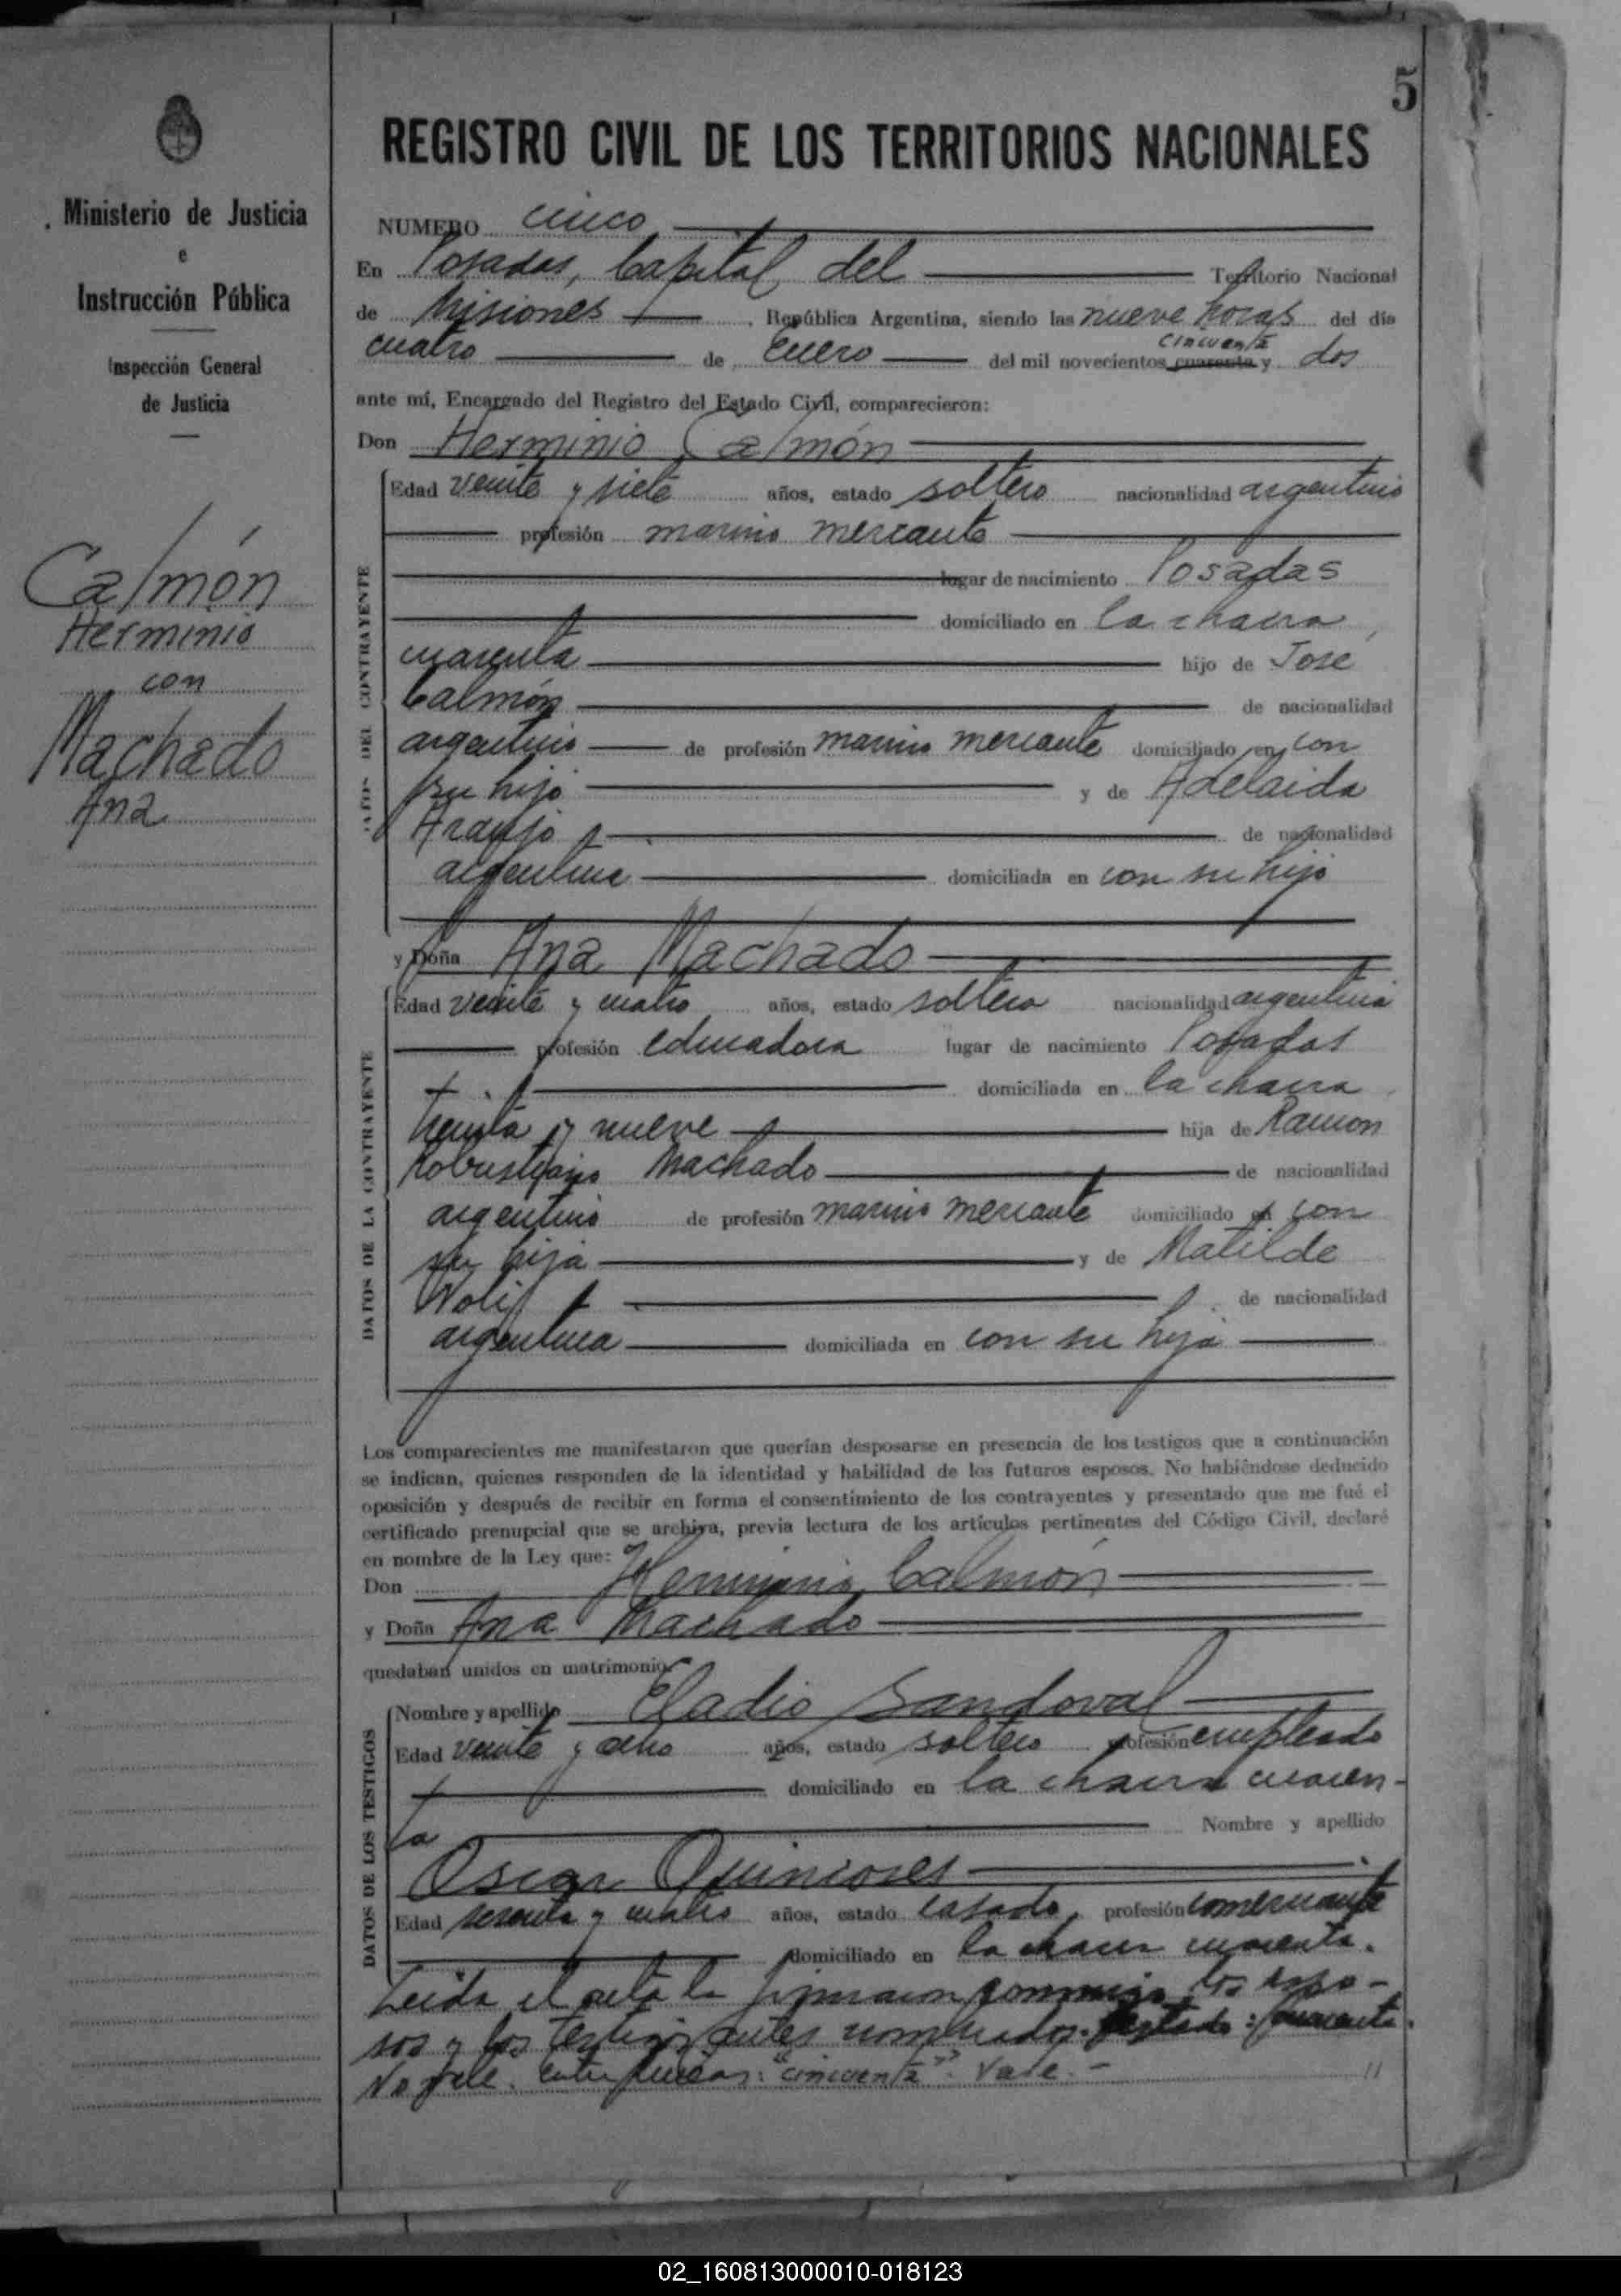 5
REGISTRO CIVIL DE LOS TERRITORIOS NACIONALES
Ministerio de Justicia
e
Instrucción Pública
Inspección General
de Justicia
Calmón
Herminio
con
Machado
Ana
NUMERO cinco
En Posadas, Capital del Territorio Nacional
de Misiones, República Argentina, siendo las nueve horas del día
cincuenta
cuatro de Enero del mil novecientos cuarenta y dos
ante mí, Encargado del Registro del Estado Civil, comparecieron:
Don Herminio Calmón
DATOS DEL CONTRAYENTE
Edad veinte y siete años, estado soltero nacionalidad argentino
profesión marino mercante
lugar de nacimiento Posadas
domiciliado en la chacra
cuarenta hijo de José
Calmón de nacionalidad
argentino de profesión marino mercante domiciliado en con
su hijo y de Adelaida
Araujo de nacionalidad
argentina domiciliada en con su hijo
y Doña Ana Machado
DATOS DE LA CONTRAYENTE
Edad veinte y cuatro años, estado soltera nacionalidad argentina
profesión educadora lugar de nacimiento Posadas
domiciliada en la chacra
treinta y nueve hija de Ramon
Robustiano Machado de nacionalidad
argentino de profesión marino mercante domiciliado en con
su hija y de Matilde
de nacionalidad
argentina domiciliada en con su hija
Los comparecientes me manifestaron que querían desposarse en presencia de los testigos que a continuación
se indican, quienes responden de la identidad y habilidad de los futuros esposos. No habiéndose deducido
oposición y después de recibir en forma el consentimiento de los contrayentes y presentado que me fué el
certificado prenupcial que se archiva, previa lectura de los artículos pertinentes del Código Civil, declaré
en nombre de la Ley que:
Don Herminio Calmón
y Doña Ana Machado
quedaban unidos en matrimonio
DATOS DE LOS TESTIGOS
Nombre y apellido Eladio Sandoval
Edad veinte y ocho años, estado soltero profesión empleado
domiciliado en la chacra cuaren-
ta Nombre y apellido
Oscar Quiñones
Edad sesenta y cuatro años, estado casado, profesión comerciante
domiciliado en la chacra cuarenta.
Leída el acta la firmaron conmigo los espo-
sos y los testigos antes nombrados. Testado: cuarenta.
No vale. Entre líneas: "cincuenta". Vale.-
02_160813000010-018123